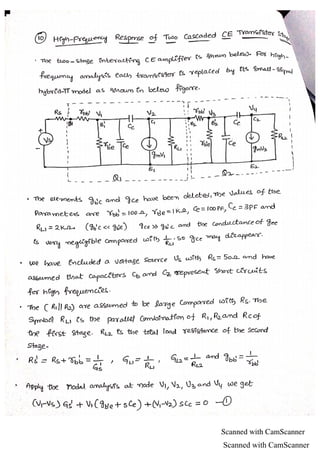 ⑩ High-Frequency Response of Two Cascaded CE Transistor Stages
• The two-stage Interacting CE amplifier is shown below. For high-
frequency analysis each transistor is replaced by its small-signal
hybrid-π model as shown in below figure.
Rs rbb' V1 V2 rbb' V3 V4
B1' Cc C1 B2' Cc C2
Vs rb'e Ce gmV1 RL1 rb'e Ce gmV3 RL2
E1 E2
Q1 Q2
• The elements gb'c and gce have been deleted, The values of the
Parameters are rbb' = 100Ω, rb'e = 1KΩ, Ce = 100PF, Cc = 3PF and
RL1 = 2KΩ. (gb'c << gb'e) gce >> gb'c and the conductance of gce
is very negligible compared with 1/RL. So gce may disappear.
• we have Included a voltage source Vs with Rs = 50Ω and have
assumed that capacitors Cb and Cz represent short circuits
for high frequencies.
• The (R1||R2) are assumed to be large compared with Rs. The
Symbol RL1 is the parallel combination of R1, R2 and Rc of
the first stage. RL2 is the total load resistance of the second
Stage.
• Rs' = Rs + rbb' = 1/Gs' , GL1 = 1/RL1 , GL2 = 1/RL2 and gbb' = 1/rbb'
• Apply the Nodal analysis at node V1, V2, V3 and V4 we get
(V1-Vs) Gs' + V1(gb'e + sCe) + (V1-V2) sCc = 0 —①
Scanned with CamScanner
Scanned with CamScanner